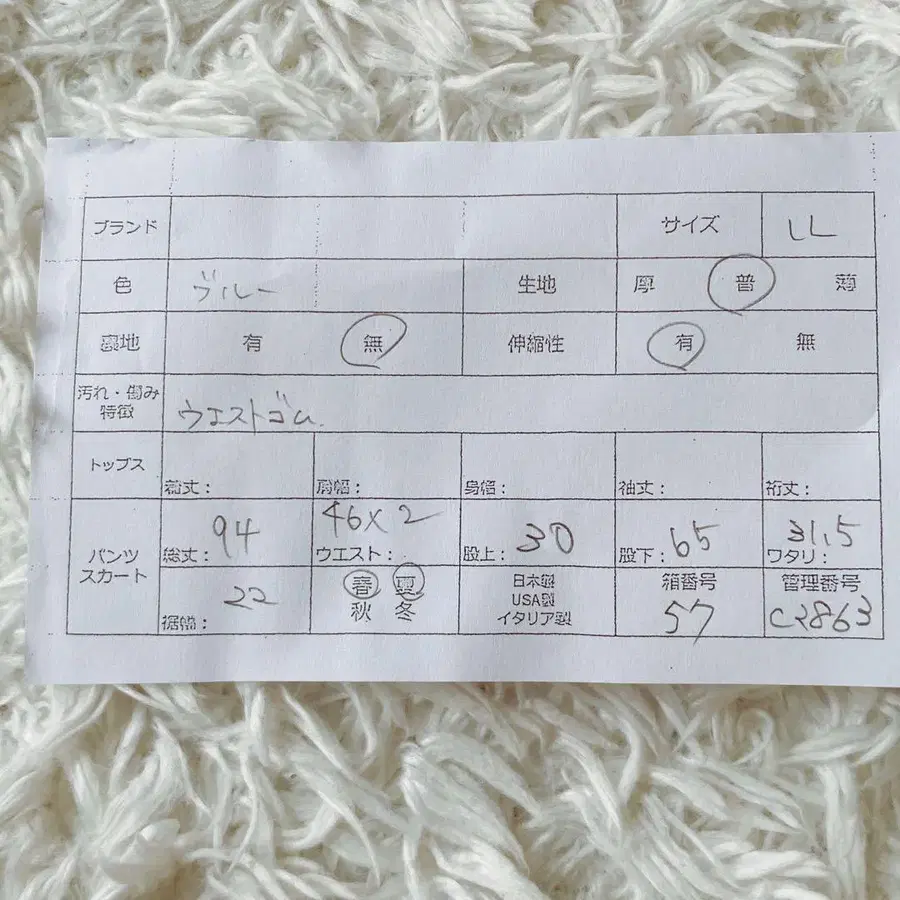 ブランド サイズ LL
色 ブルー 生地 厚 普 薄
裏地 有 無 伸縮性 有 無
汚れ・傷み
特徴 ウエストゴム
トップス 着丈: 肩幅: 身幅: 袖丈: 裄丈:
パンツ
スカート 総丈: 94 ウエスト: 46×2 股上: 30 股下: 65 ワタリ: 31,5
裾幅: 22 春 夏
秋 冬
日本製
USA製
イタリア製
箱番号
57
管理番号
C2863